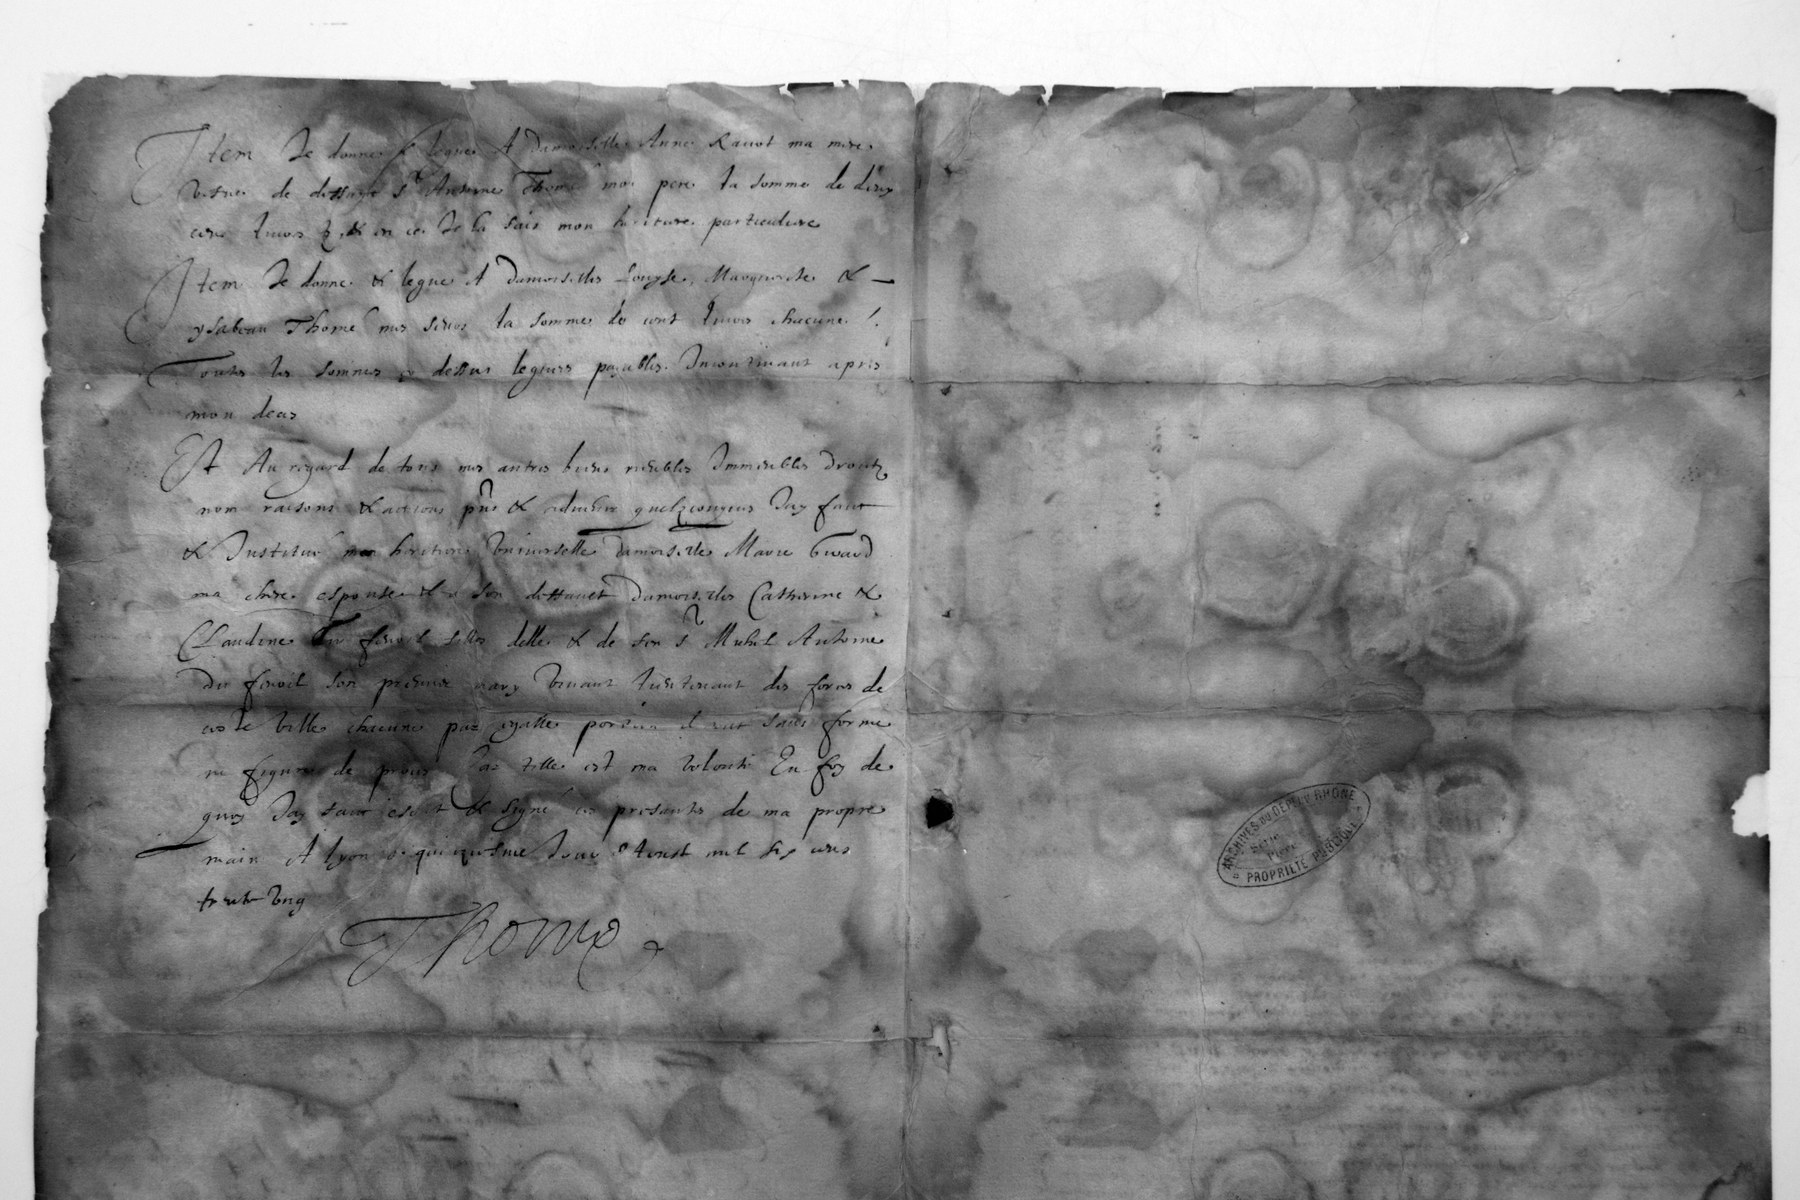 Item Je donne & legue A damoiselle Anne Ravot ma mere
vesve de deffunct Sr Antoine Thomé mon pere la somme de deux
cens livres & en ce Je la fais mon heritiere particuliere
Item Je donne & legue A damoiselles Louyse, Marguerite &
ysabeau Thomé mes seurs la somme de cent livres chacune
Toutes les sommes cy dessus leguees payables Incontinant apres
mon deces
Et Au regard de tous mes autres biens meubles Immeubles droictz
nom raisons & actions pns & advenir quelzconques Jay faict
& Institué mon heritiere Universelle damoiselle Marie Girard
ma chere espouse & a son deffault damoiselles Catherine &
Claudine filles delle & de feu Sr Michel Antoine
du fenoil son premier mary vivant lieutenant des fortz de
ceste ville chacune par egalle portion sans forme
ne figure de proces Car telle est ma volonté En foy de
quoy Jay faict escript & signé ces presantes de ma propre
main A lyon ce quinziesme Jour mil six cens
trente ung
Thomé
ARCHIVES DU DEPT DU RHONE
Série
Pièce
PROPRIÉTÉ PUBLIQUE